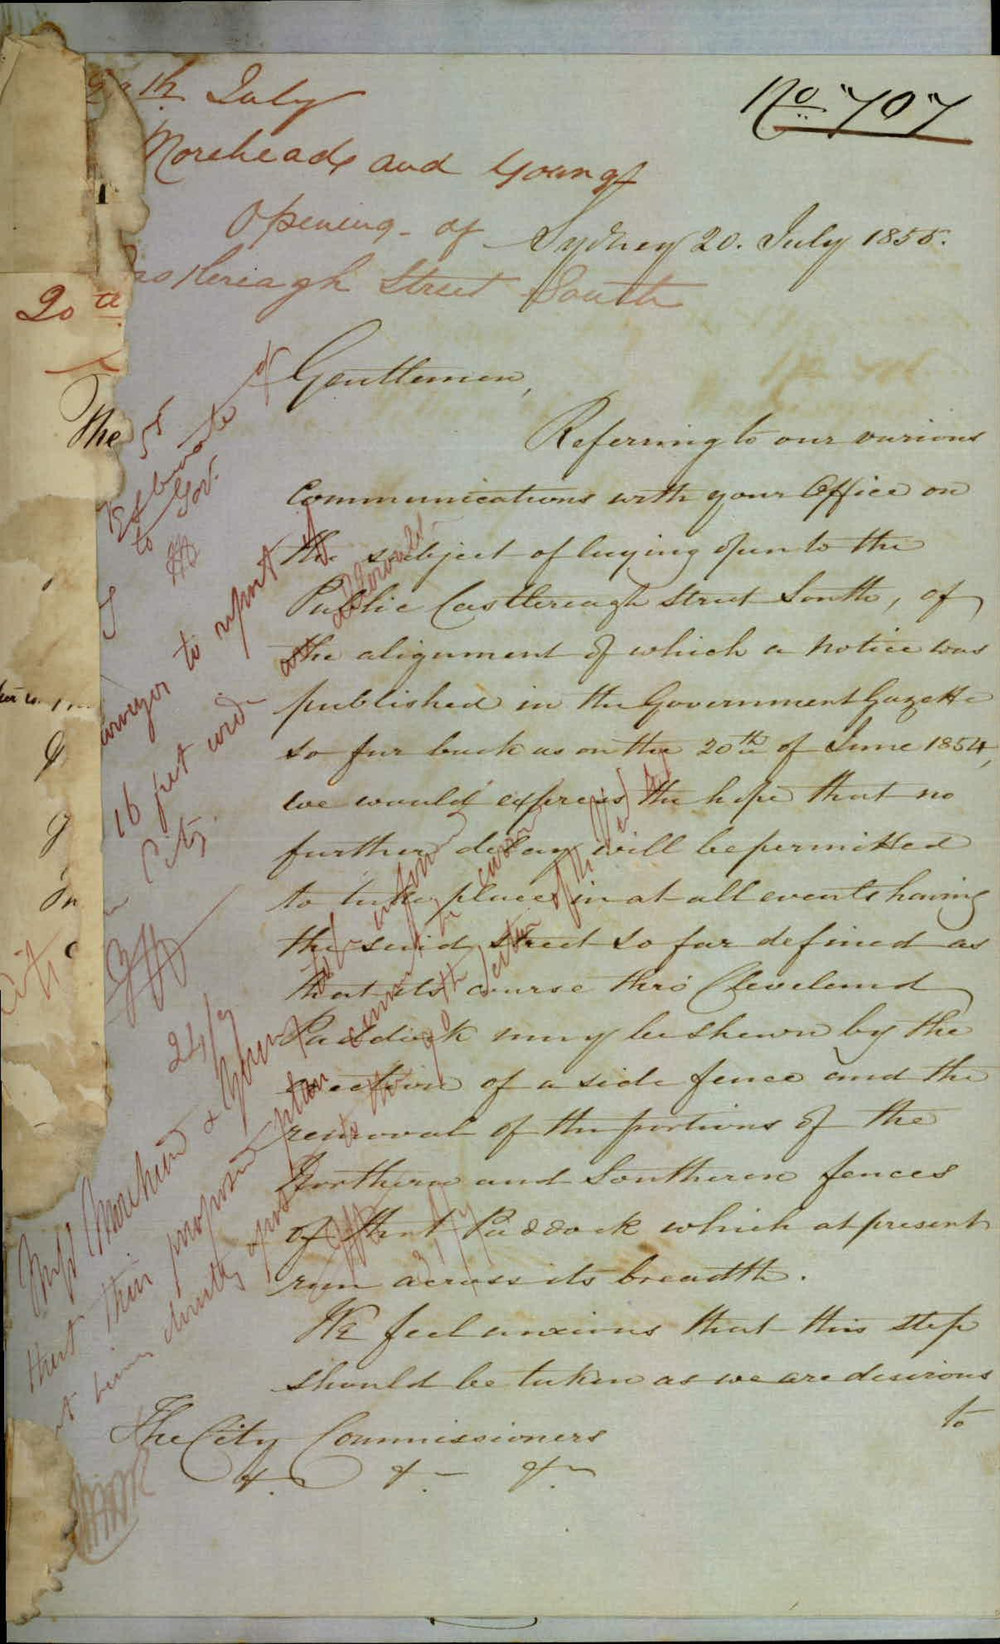 20th July
No. 707
Moreheads and Young
Opening of
Sydney 20. July 1855.
Castlereagh Street South
20th
Gentlemen,
The
Referring to our various
Communications with your Office on
the subject of laying open to the
Public Castlereagh Street South, of
the alignment of which a notice was
published in the Government Gazette
so far back as on the 20th of June 1854,
we would express the hope that no
further delay will be permitted
to take place in at all events having
the said street so far defined as
that its course thro' Cleveland
Paddock may be shewn by the
erection of a side fence and the
removal of the portions of the
Northern and Southern fences
of that Paddock which at present
run across its breadth.
We feel anxious that this step
should be taken as we are desirous
to
The City Commissioners
&. &. &.
55
Estimate of
to Gov.
to report if
16 feet wide
City
24/7
Messrs Morehead & Young
that their proposed plan
directly opposed to the
31/7